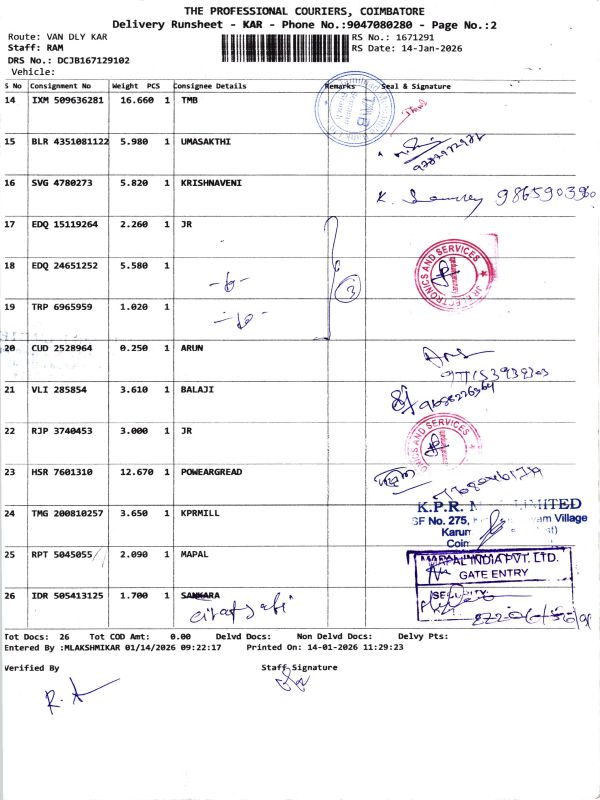 THE PROFESSIONAL COURIERS, COIMBATORE
Delivery Runsheet - KAR - Phone No.:9047080280 - Page No.:2
Route: VAN DLY KAR RS No.: 1671291
Staff: RAM RS Date: 14-Jan-2026
DRS No.: DCJB167129102
Vehicle:
S No Consignment No Weight PCS Consignee Details Remarks Seal & Signature
14 IXM 509636281 16.660 1 TMB
TMB
15 BLR 4351081122 5.980 1 UMASAKTHI
16 SVG 4780273 5.820 1 KRISHNAVENI
9865903960
17 EDQ 15119264 2.260 1 JR
18 EDQ 24651252 5.580 1
3
JR ELECTRONICS AND SERVICES
19 TRP 6965959 1.020 1
20 CUD 2528964 0.250 1 ARUN
21 VLI 285854 3.610 1 BALAJI
22 RJP 3740453 3.000 1 JR
ONICS AND SERVICES
23 HSR 7601310 12.670 1 POWEARGREAD
24 TMG 200810257 3.650 1 KPRMILL
K.P.R. LIMITED
SF No. 275, Village
25 RPT 5045055 2.090 1 MAPAL
MAPAL INDIA PVT. LTD.
GATE ENTRY
26 IDR 505413125 1.700 1 SANKARA
SECURITY
Tot Docs: 26 Tot COD Amt: 0.00 Delvd Docs: Non Delvd Docs: Delvy Pts:
Entered By :MLAKSHMIKAR 01/14/2026 09:22:17 Printed On: 14-01-2026 11:29:23
Verified By Staff Signature